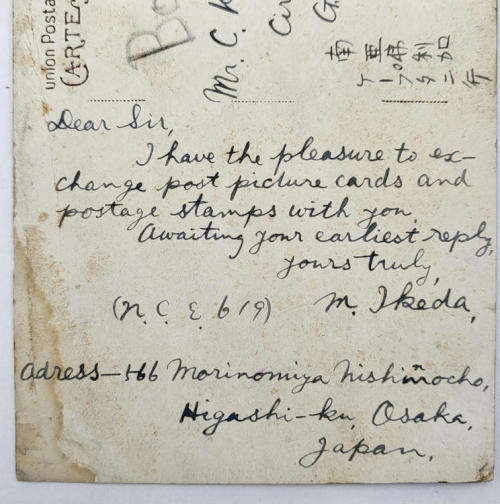 union Posta
(ARTE
Bo
Mr. C.
Cir
G.
南亜弗利加
ケープタ
Dear Sir,
I have the pleasure to ex-
change post picture cards and
postage stamps with you.
Awaiting your earliest reply,
yours truly,
(N. C. E. 619) M. Ikeda,
Adress—166 Morinomiya Nishinocho,
Higashi-ku, Osaka,
Japan.